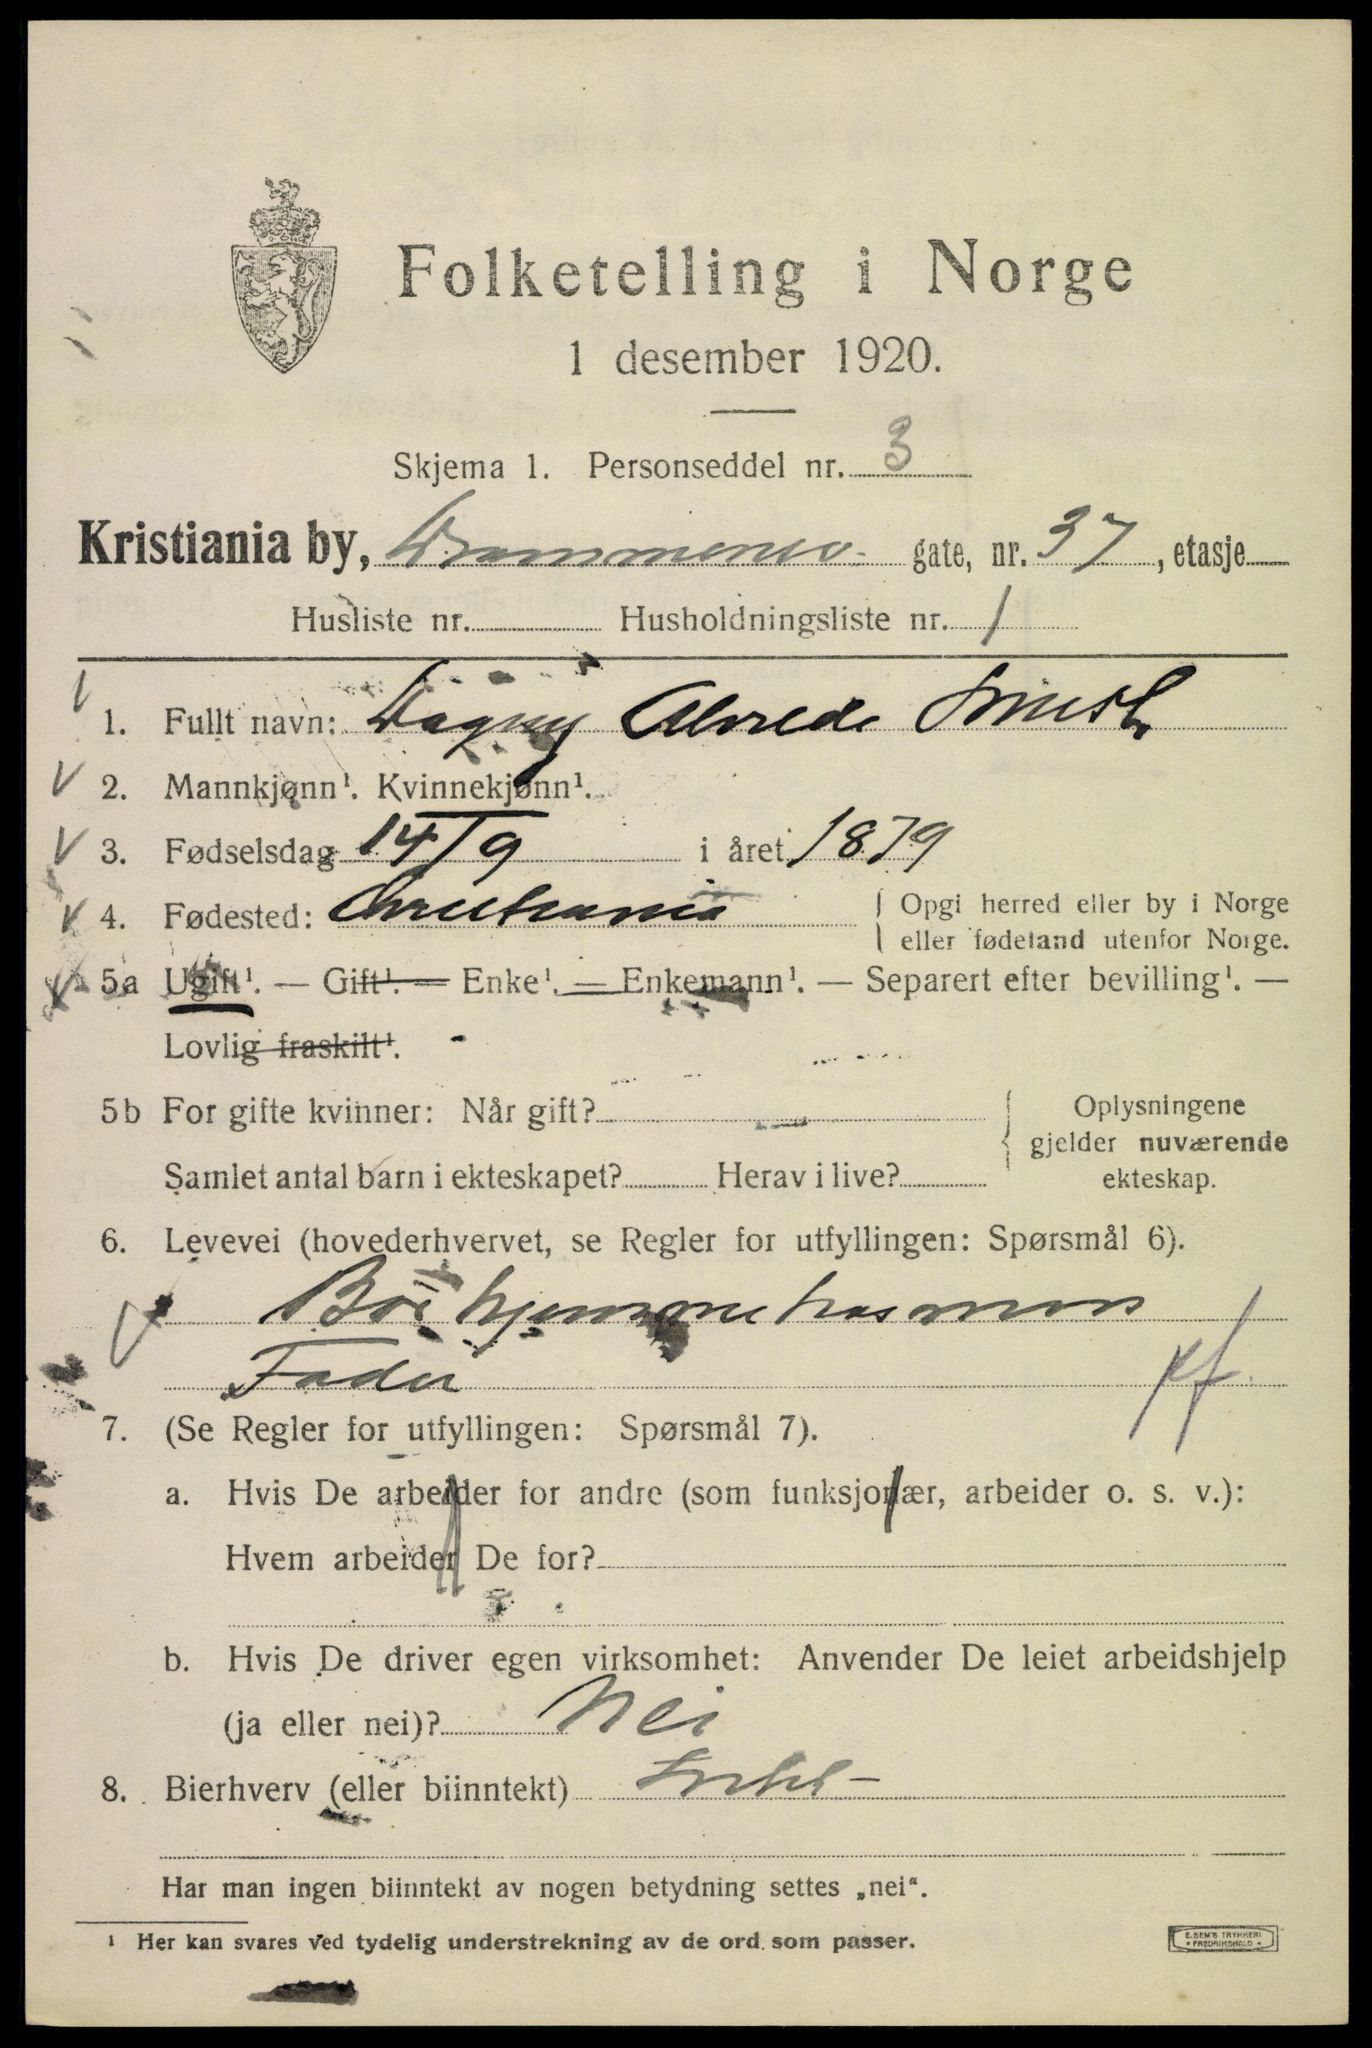 Folketelling i Norge
1 desember 1920.
Skjema 1. Personseddel nr. 3
Kristiania by, Drammensv. gate, nr. 37, etasje
Husliste nr. Husholdningsliste nr. 1
1. Fullt navn: Dagny Alvede Smith
2. Mannkjønn¹. Kvinnekjønn¹.
3. Fødselsdag 14/9 i året 1879
4. Fødested: Christiania
Opgi herred eller by i Norge
eller fødeland utenfor Norge.
5a Ugift¹. — Gift¹. — Enke¹. — Enkemann¹. — Separert efter bevilling¹. —
Lovlig fraskilt¹.
5b For gifte kvinner: Når gift?
Samlet antal barn i ekteskapet? Herav i live?
Oplysningene
gjelder nuværende
ekteskap.
6. Levevei (hovederhvervet, se Regler for utfyllingen: Spørsmål 6).
Bor hjemme hos min
Fader
7. (Se Regler for utfyllingen: Spørsmål 7).
a. Hvis De arbeider for andre (som funksjonær, arbeider o. s. v.):
Hvem arbeider De for?
b. Hvis De driver egen virksomhet: Anvender De leiet arbeidshjelp
(ja eller nei)? Nei
8. Bierhverv (eller biinntekt)
Har man ingen biinntekt av nogen betydning settes „nei“.
¹ Her kan svares ved tydelig understrekning av de ord som passer.
E. SEM'S TRYKKERI
• FREDRIKSHALD •